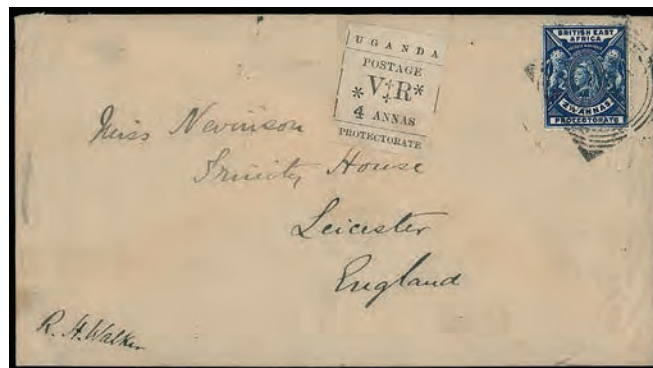 UGANDA
POSTAGE
V R
4 ANNAS
PROTECTORATE
BRITISH EAST
AFRICA
2½ ANNAS
PROTECTORATE
Miss Nevinson
Trinity House
Leicester
England
R. H. Walker